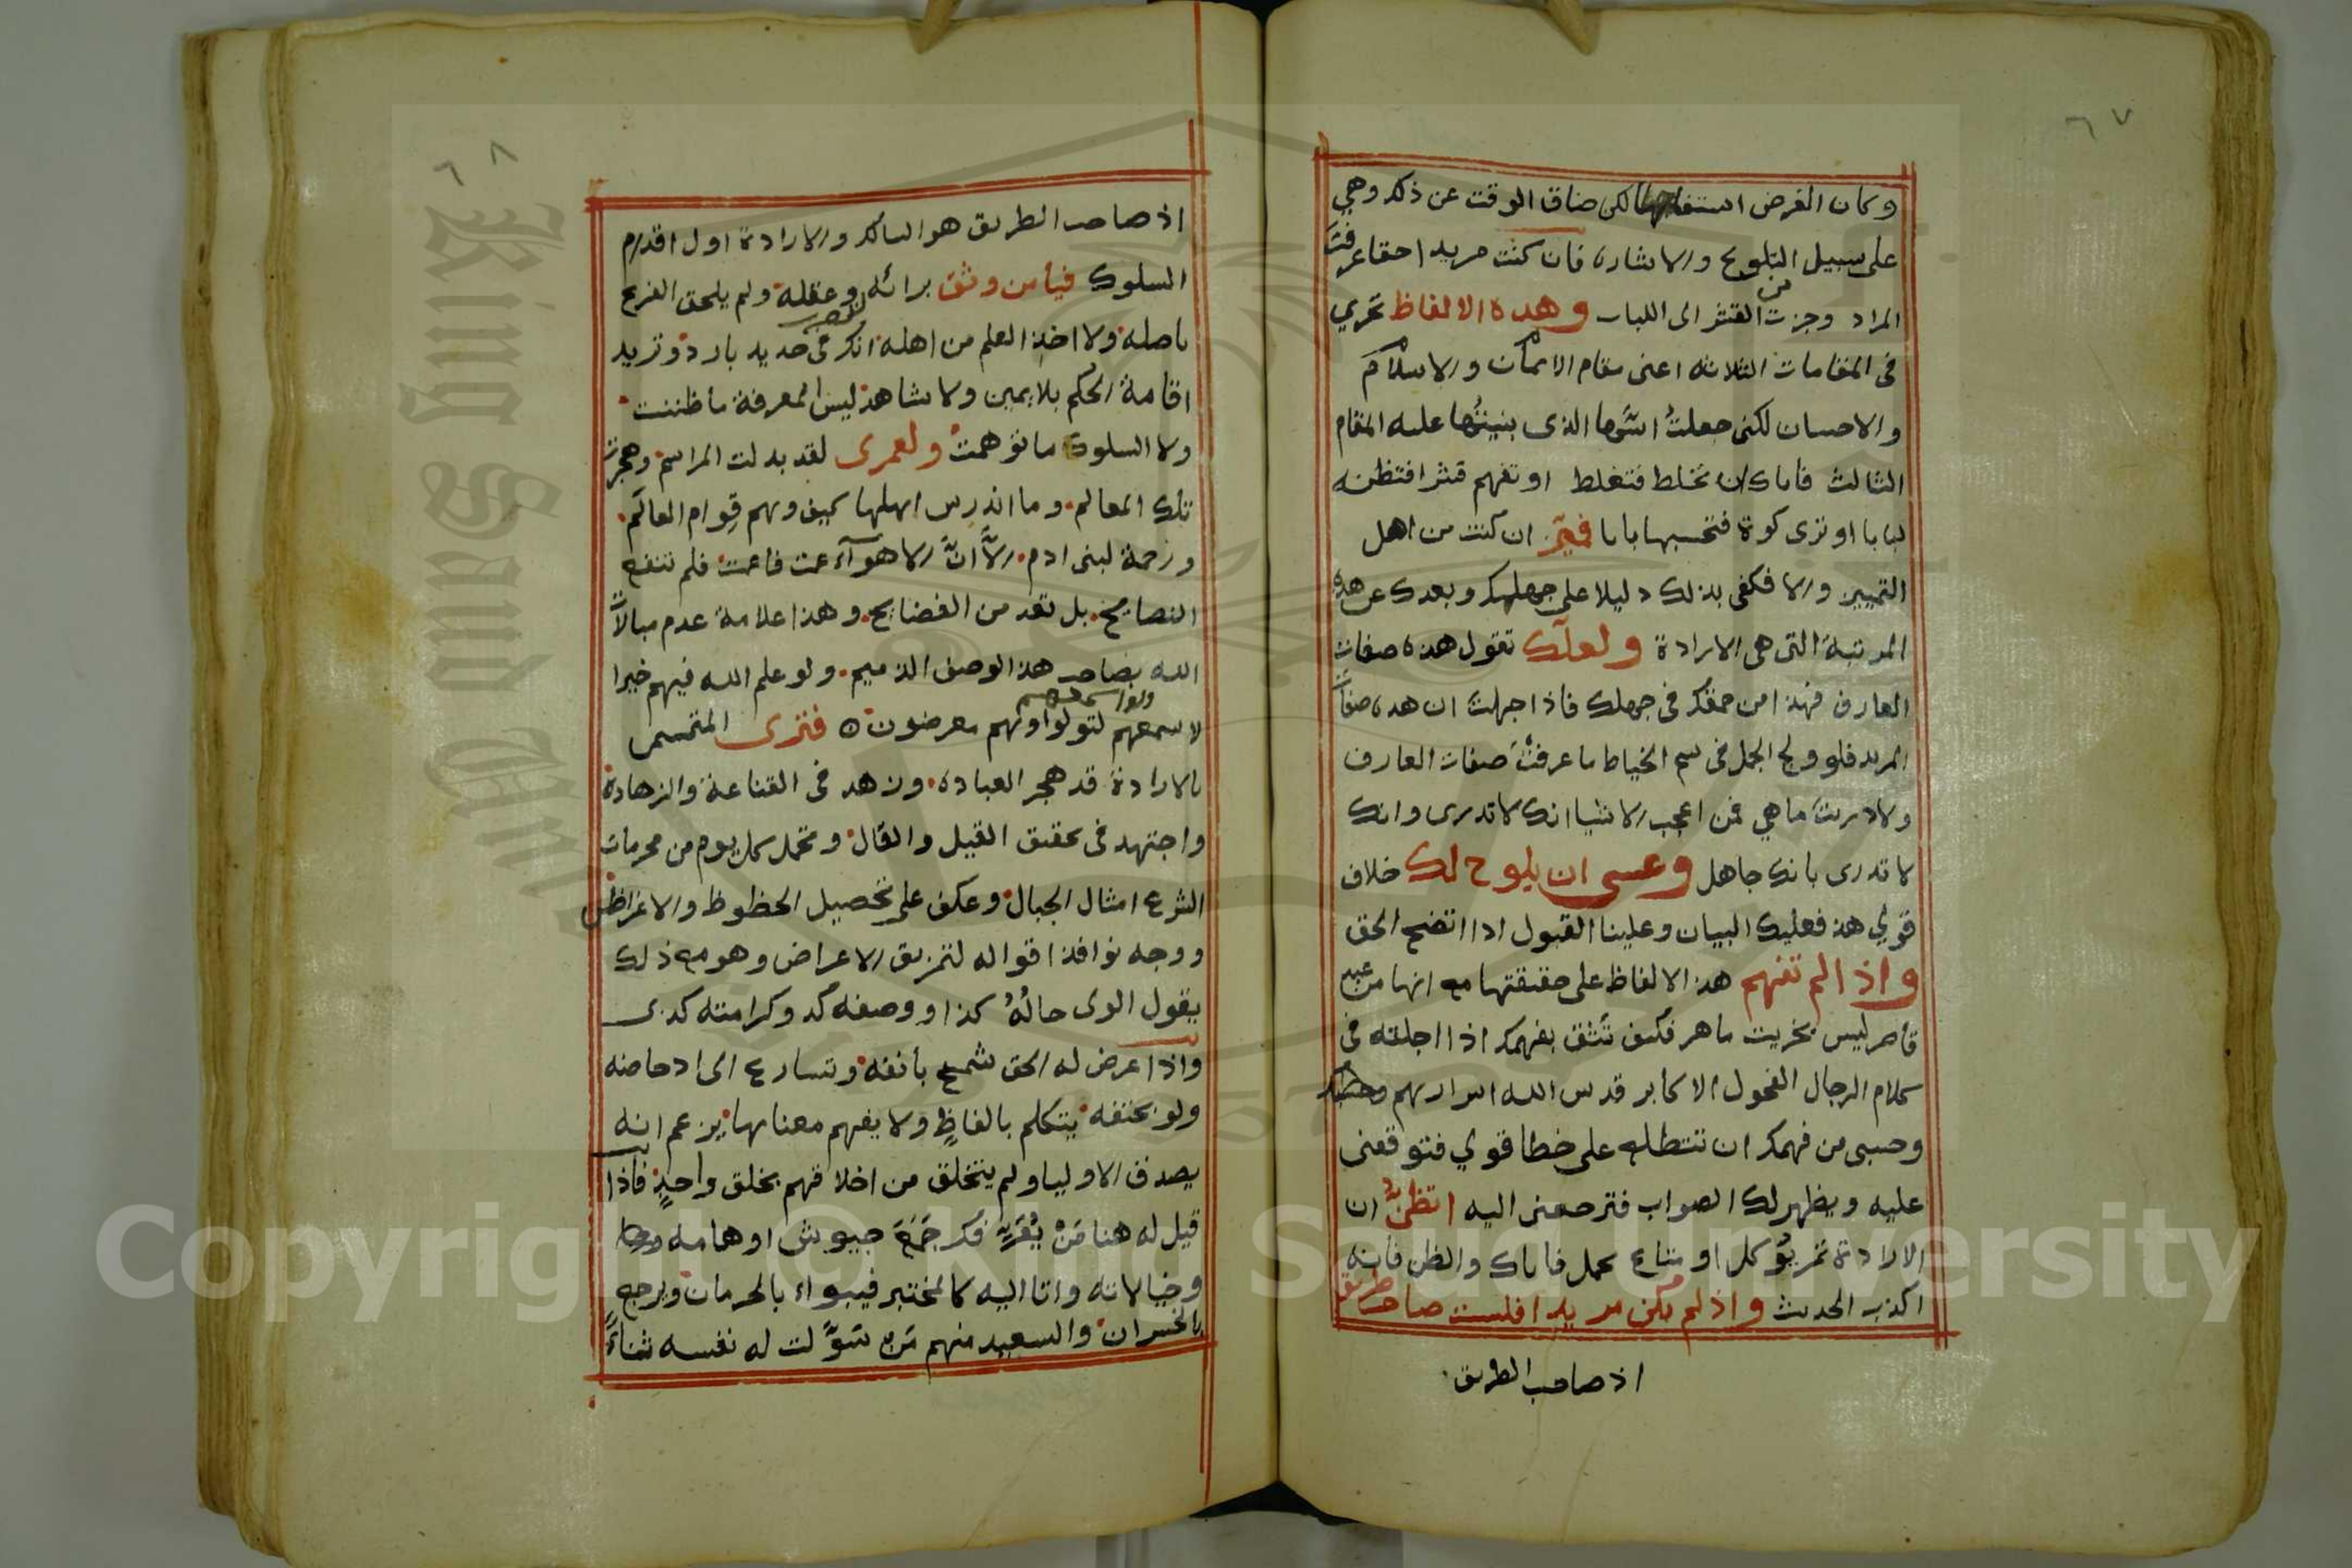 ٦٧
وكان الغرض استقا لكن ضاق الوقت عن ذلك وهي
على سبيل التلويح والاشاره فان كنت مريدا حقا عرفت
المراد وجزت من القشر الى اللباب وهده الالفاظ تجري
فى المقامات الثلاثه اعنى مقام الايمان والاسلام
والاحسان لكنى جعلت اسها الذى بنيتها عليه المقام
الثالث فاياك ان تخلط فتغلط او تفهم قشرا فتظنه
لبابا او ترى كوة فتحسبها بابا فميّز ان كنت من اهل
التمييز والا فكفى بذلك دليلا على جهلك وبعدك عن هذه
المرتبة التى هى الارادة ولعلك تقول هذه صفات
العارف فهذا من حمقك فى جهلك فاذا جهلت ان هده صفات
المريد فلو ولج الجمل فى سم الخياط ما عرفت صفات العارف
ولا دريت ما هي فمن اعجب الاشيا انك لا تدرى وانك
لا تدرى بانك جاهل وعسى ان يلوح لك خلاف
قولي هذ فعليك البيان وعلينا القبول اذا اتضح الحق
واذا لم تفهم هذ الالفاظ على حقيقتها مع انها من عبد
قاصر ليس بخريت ماهر فكيف تثق بفهمك اذا اجلته فى
كلام الرجال الفحول الاكابر قدس الله اسرارهم
وحسبى من فهمك ان تتطلع على خطا قولي فتوقفنى
عليه ويظهر لك الصواب فترجعنى اليه اتظنّ ان
الارادة تمر يؤكل او متاع يحمل فاياك والظن فانه
اكذب الحديث واذ لم تكن مريدا فلست صاحب طريق
اذ صاحب الطريق
٦٨
اذ صاحب الطريق هو السالك والارادة اول اقدام
السلوك فيا من وثق برائه وعقله ولم يلحق الفرع
باصله ولا اخذ العلم من اهله انك لتضرب فى حديد بارد وتريد
اقامة الحكم بلا يمين ولا شاهد ليس المعرفة ما ظننت
ولا السلوك ما توهمت ولعمرى لقد بدلت المراسم وهجرت
تلك المعالم وما اندرس اهلها كيف وهم قوام العالم
ورحمة لبنى ادم الا انّ الاهوآء عمت فاعمت فلم تنفع
النصايح بل تعد من الفضايح وهذا علامة عدم مبالاة
الله بصاحب هذ الوصف الذميم ولو علم الله فيهم خيرا
لاسمعهم ولو اسمعهم لتولوا وهم معرضون ه فترى المتمسس
بالارادة قد هجر العباده وزهد فى القناعة والزهادة
واجتهد فى تحقيق القيل والقال وتحمل كل يوم من محرمات
الشرع امثال الجبال وعكف على تحصيل الحظوظ والاغراض
ووجه نوافذ اقواله لتمزيق الاعراض وهو مع ذلك
يقول الوى حاله كذا ووصفه كد وكرامته كدى
واذا عرض له الحق شمخ بأنفه وتسارع الى ادحاضه
ولو بحتفه يتكلم بالفاظٍ ولا يفهم معناها يزعم انه
يصدق الاوليا ولم يتخلق من اخلاقهم بخلق واحدٍ فاذا
قيل له هنا مَنْ يُقَرِّبُك جَمَعَ جيوش اوهامه
وخيالاته واتا اليه كالمختبر فيبواء بالحرمان ويرجع
بالخسران والسعيد منهم من سَوّلت له نفسه ثناءً